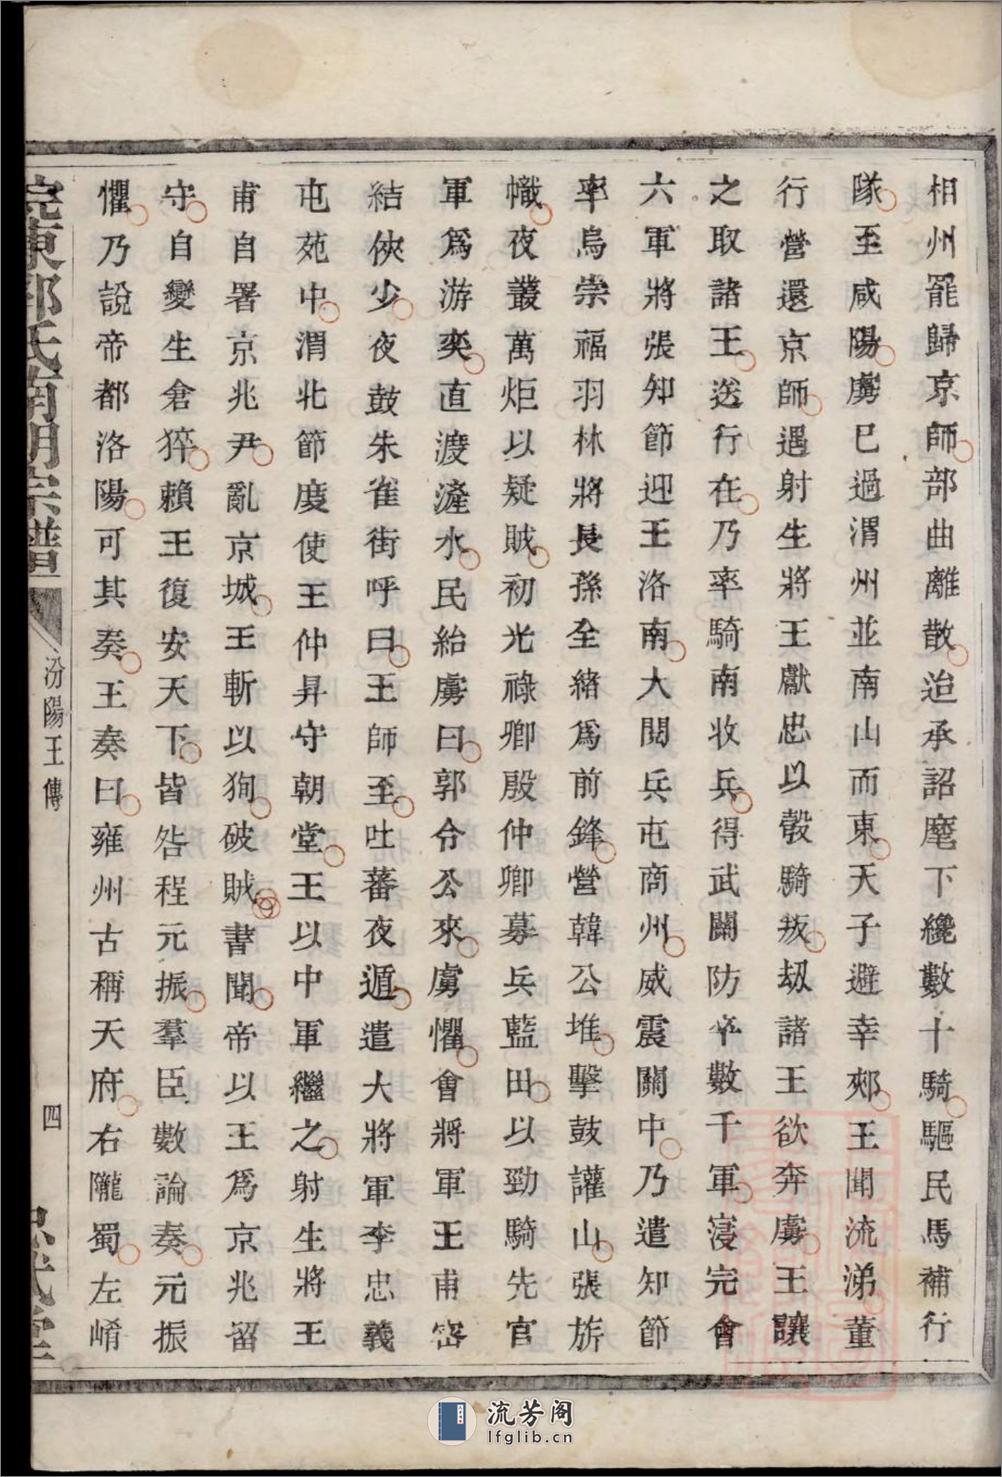 相州罷歸京師部曲離散迨承詔麾下纔數十騎驅民馬補行
隊至咸陽虜已過渭州並南山而東天子避幸郟王聞流涕董
行營還京師遇射生將王獻忠以彀騎叛刼諸王欲奔虜王讓
之取諸王送行在乃率騎南收兵得武關防卒數千軍寖完會
六軍將張知節迎王洛南大閱兵屯商州威震關中乃遣知節
率烏崇福羽林將長孫全緒爲前鋒營韓公堆擊鼓讙山張旂
幟夜叢萬炬以疑賊初光祿卿殷仲卿募兵藍田以勁騎先官
軍爲游奕直渡滻水民紿虜曰郭令公來虜懼會將軍王甫宻
結俠少夜鼓朱雀街呼曰王師至吐蕃夜遁遣大將軍李忠義
屯苑中渭北節度使王仲昇守朝堂王以中軍繼之射生將王
甫自署京兆尹亂京城王斬以狥破賊書聞帝以王爲京兆留
守自變生倉猝賴王復安天下皆咎程元振羣臣數論奏元振
懼乃說帝都洛陽可其奏王奏曰雍州古稱天府右隴蜀左崤
皖東郭氏南明宗譜
汾陽王傳
四